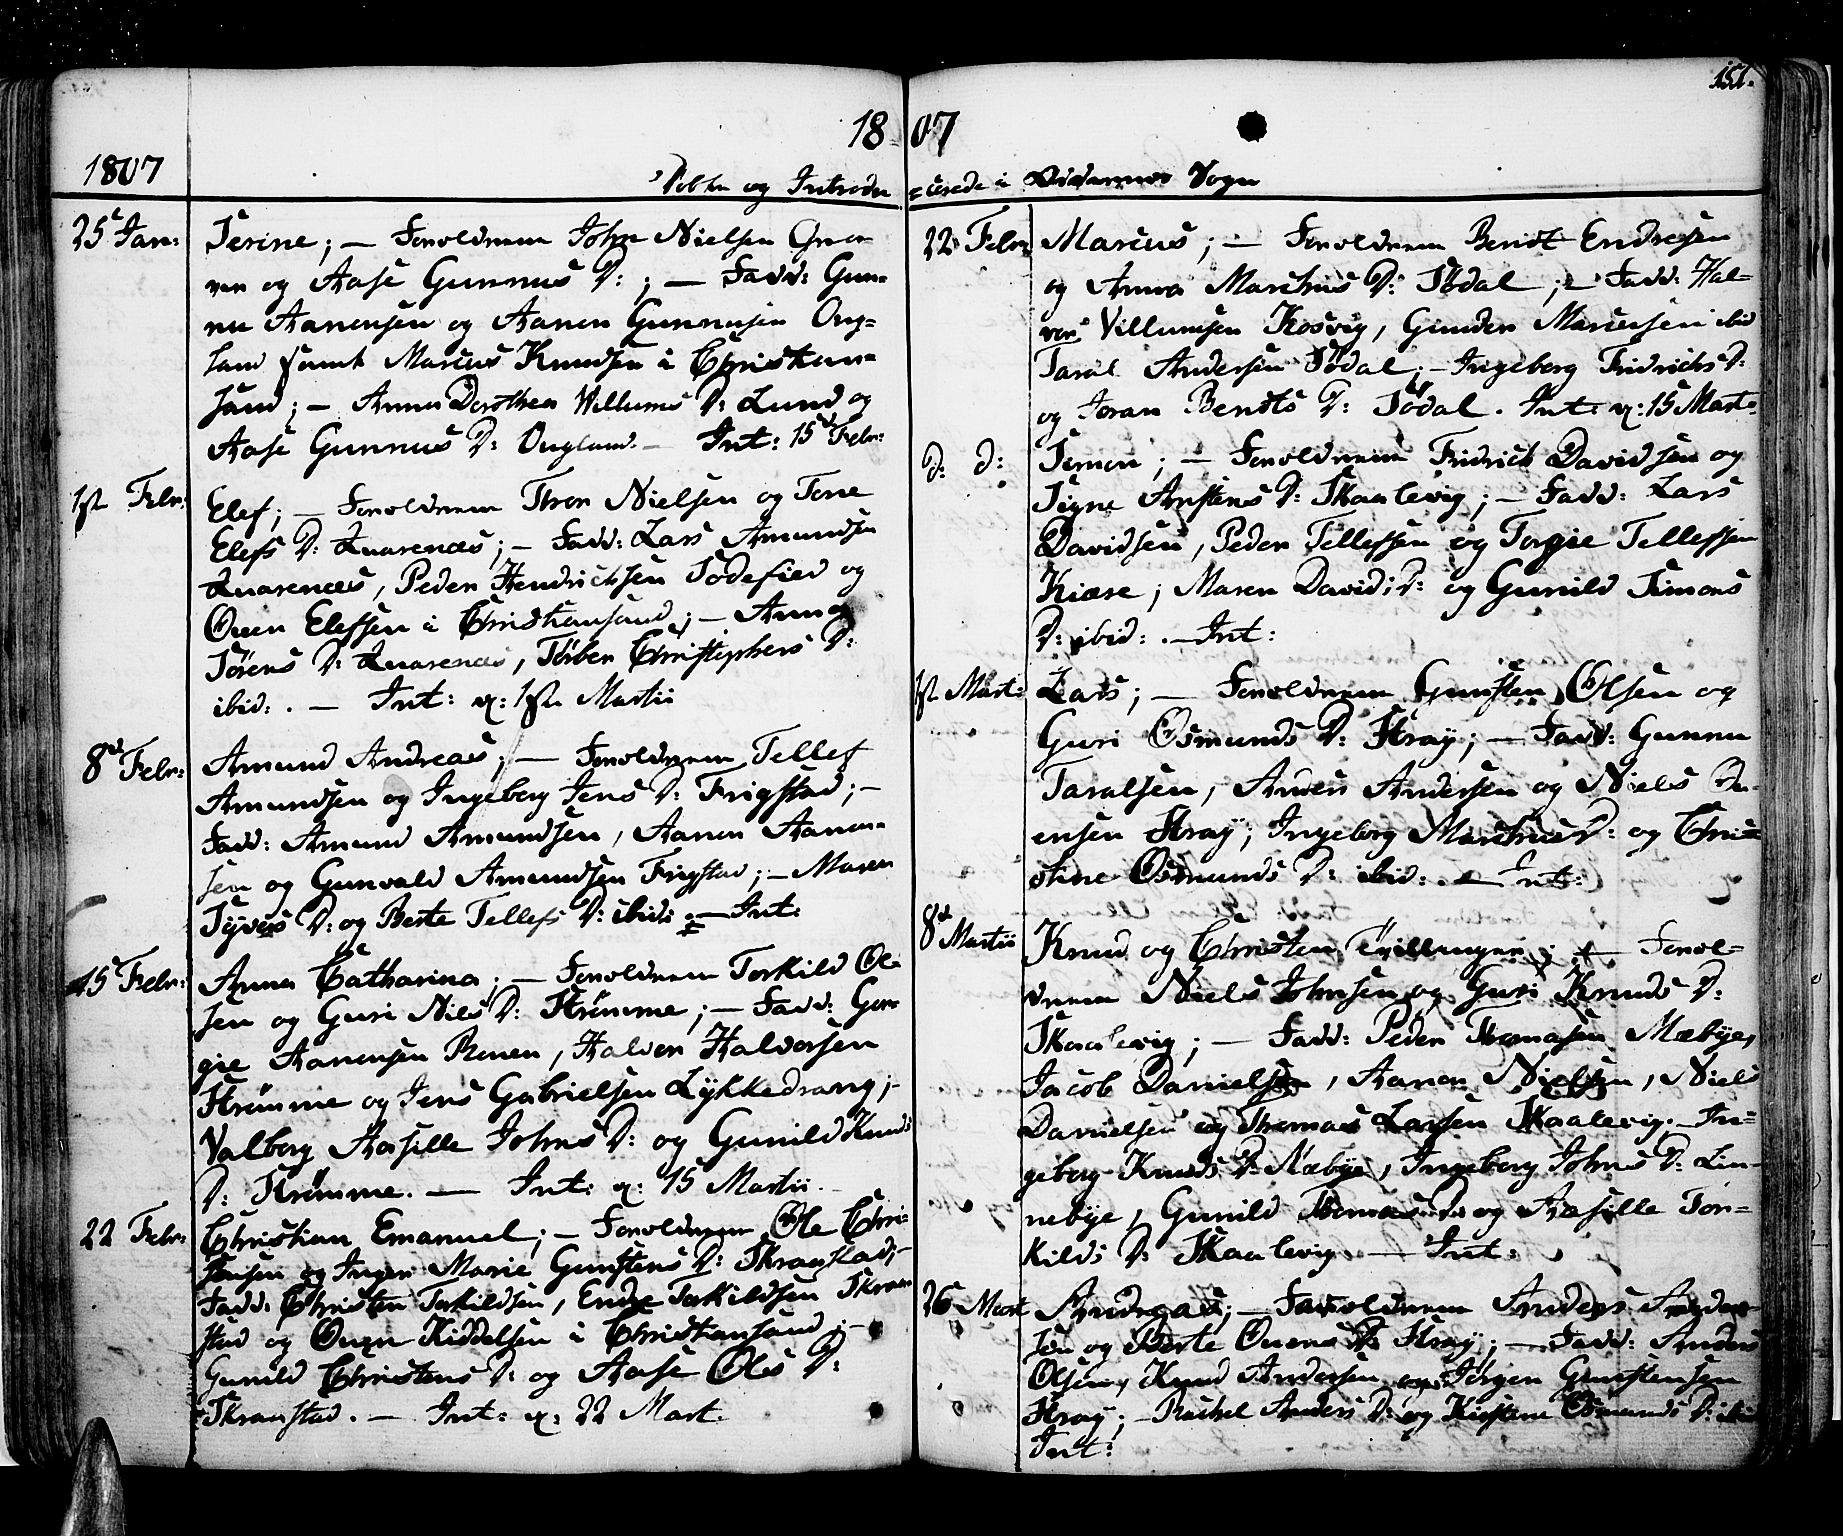 151.
1807
1807
Døbte og Introdu=cerede i Oddernes Sogn
25de Jan: Serine; — Forældrene John Nielsen
og Aase Gunnus D: ; — Fadd: Gun=
nu Aanensen og Aanen Gunnusen Oug=
land samt Marcus Knudsen i Christian=
sand; — Anna Dorothea Willums D: Lund og
Aase Gunnus D: Ougland. — Int: 15d Febr:
1ste Febr: Elef; — Forældrene Thron Nielsen og Tone
Elefs D: Quarenæs; — Fadd: Lars Amundsen
Quarenæs, Peder Hendrichsen Sodefied og
Ouen Elefsen i Christiansand; — Anna
Sørens D: Quarenæs, Torber Christophers D:
ibid: . — Int: d: 1ste Martii
8d Febr: Amund Andreas; — Forældrene Tellef
Amundsen og Ingeborg Jens D: Frigstad; —
Fadd: Amund Amundsen, Aanen Aanen=
sen og Gunvald Amundsen Frigstad; — Maren
Syvers D: og Berte Tellefs D: ibid: — Int:
15 Febr: Anna Catharina; — Forældrene Torkild Ol=
sen og Guri Niels D: Strømme; — Fadd: Geor=
gie Aanensen Ronen, Halvor Halvorsen
Strømme og Jens Gabrielsen Lykkedrang; —
Valborg Aasille Johns D: og Gunild Knuds
D: Strømme. — Int: d: 15 Martii.
22 Febr: Christian Emanuel; — Forældrene Ole Chri=
stensen og Inger Marie Gunstens D: Skraastad; —
Fadd: Christen Torkildsen, Endre Torkildsen Skraa=
stad og Ouen Kiddelsen i Christiansand; —
Gunild Christens D: og Aase Ols D:
Skraastad. — Int: d: 22 Mart.
22 Febr: Marcus; — Forældrene Bendt Endresen
og Anna Marchus D: Sødal; — Fadd: Hal=
vor Villumsen Kosvig, Gunder Marcusen ibid
Taral Andersen Sødal; — Ingeborg Fridrichs D:
og Joran Bendts D: Sødal. Int: d: 15 Mart.
d: d: Simon; — Forældrene Fridrich Davidsen og
Signe Anstens D: Skaalevig; — Fadd: Lars
Davidsen, Peder Tellefsen og Torgie Tellefsen
Kiære; Maren Davids D: og Gunild Simons
D: ibid: . — Int:
1ste Mart: Lars; — Forældrene Gunsten Olsen og
Guri Osmunds D: Stray; — Fadd: Gunnu
Taralsen, Anders Andersen og Niels Ou=
ensen Stray; Ingeborg Marchus D: og Chri=
stine Osmunds D: ibid: . — Int:
8d Martii Knud og Christen Tvillinger; — Foræl=
drene Niels Johnsen og Guri Knuds D:
Skaalevig; — Fadd: Peder Thomasen Mæbye,
Jacob Danielsen, Aanen Nielsen, Niels
Danielsen og Thomas Larsen Skaalevig. — In=
geborg Knuds D: Mæbye, Ingeborg Johns D: Lin=
nebye, Gunild Thomas D: og Aasille Tor=
kilds D: Skaalevig. — Int:
26 Mart Andreas; — Forældrene Anders Anders=
sen og Berte Ouens D: Stray; — Fadd: Anders
Olsen, Knud Andersen og Jørgen Gunstensen
Stray; — Rachel Anders D: og Kirstine Osmunds D: ibid
Int: